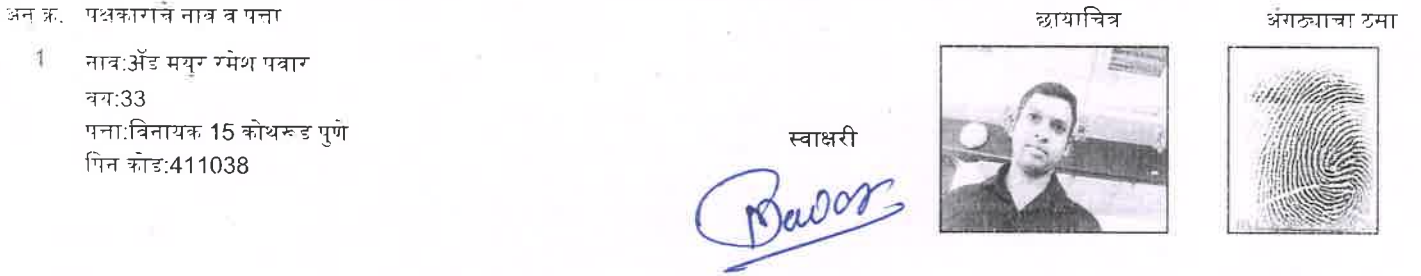 अनु क्र. पक्षकाराचे नाव व पत्ता छायाचित्र अंगठ्याचा ठसा
1 नाव:ॲड मयुर रमेश पवार
वय:33
पत्ता:विनायक 15 कोथरूड पुणे
पिन कोड:411038
स्वाक्षरी